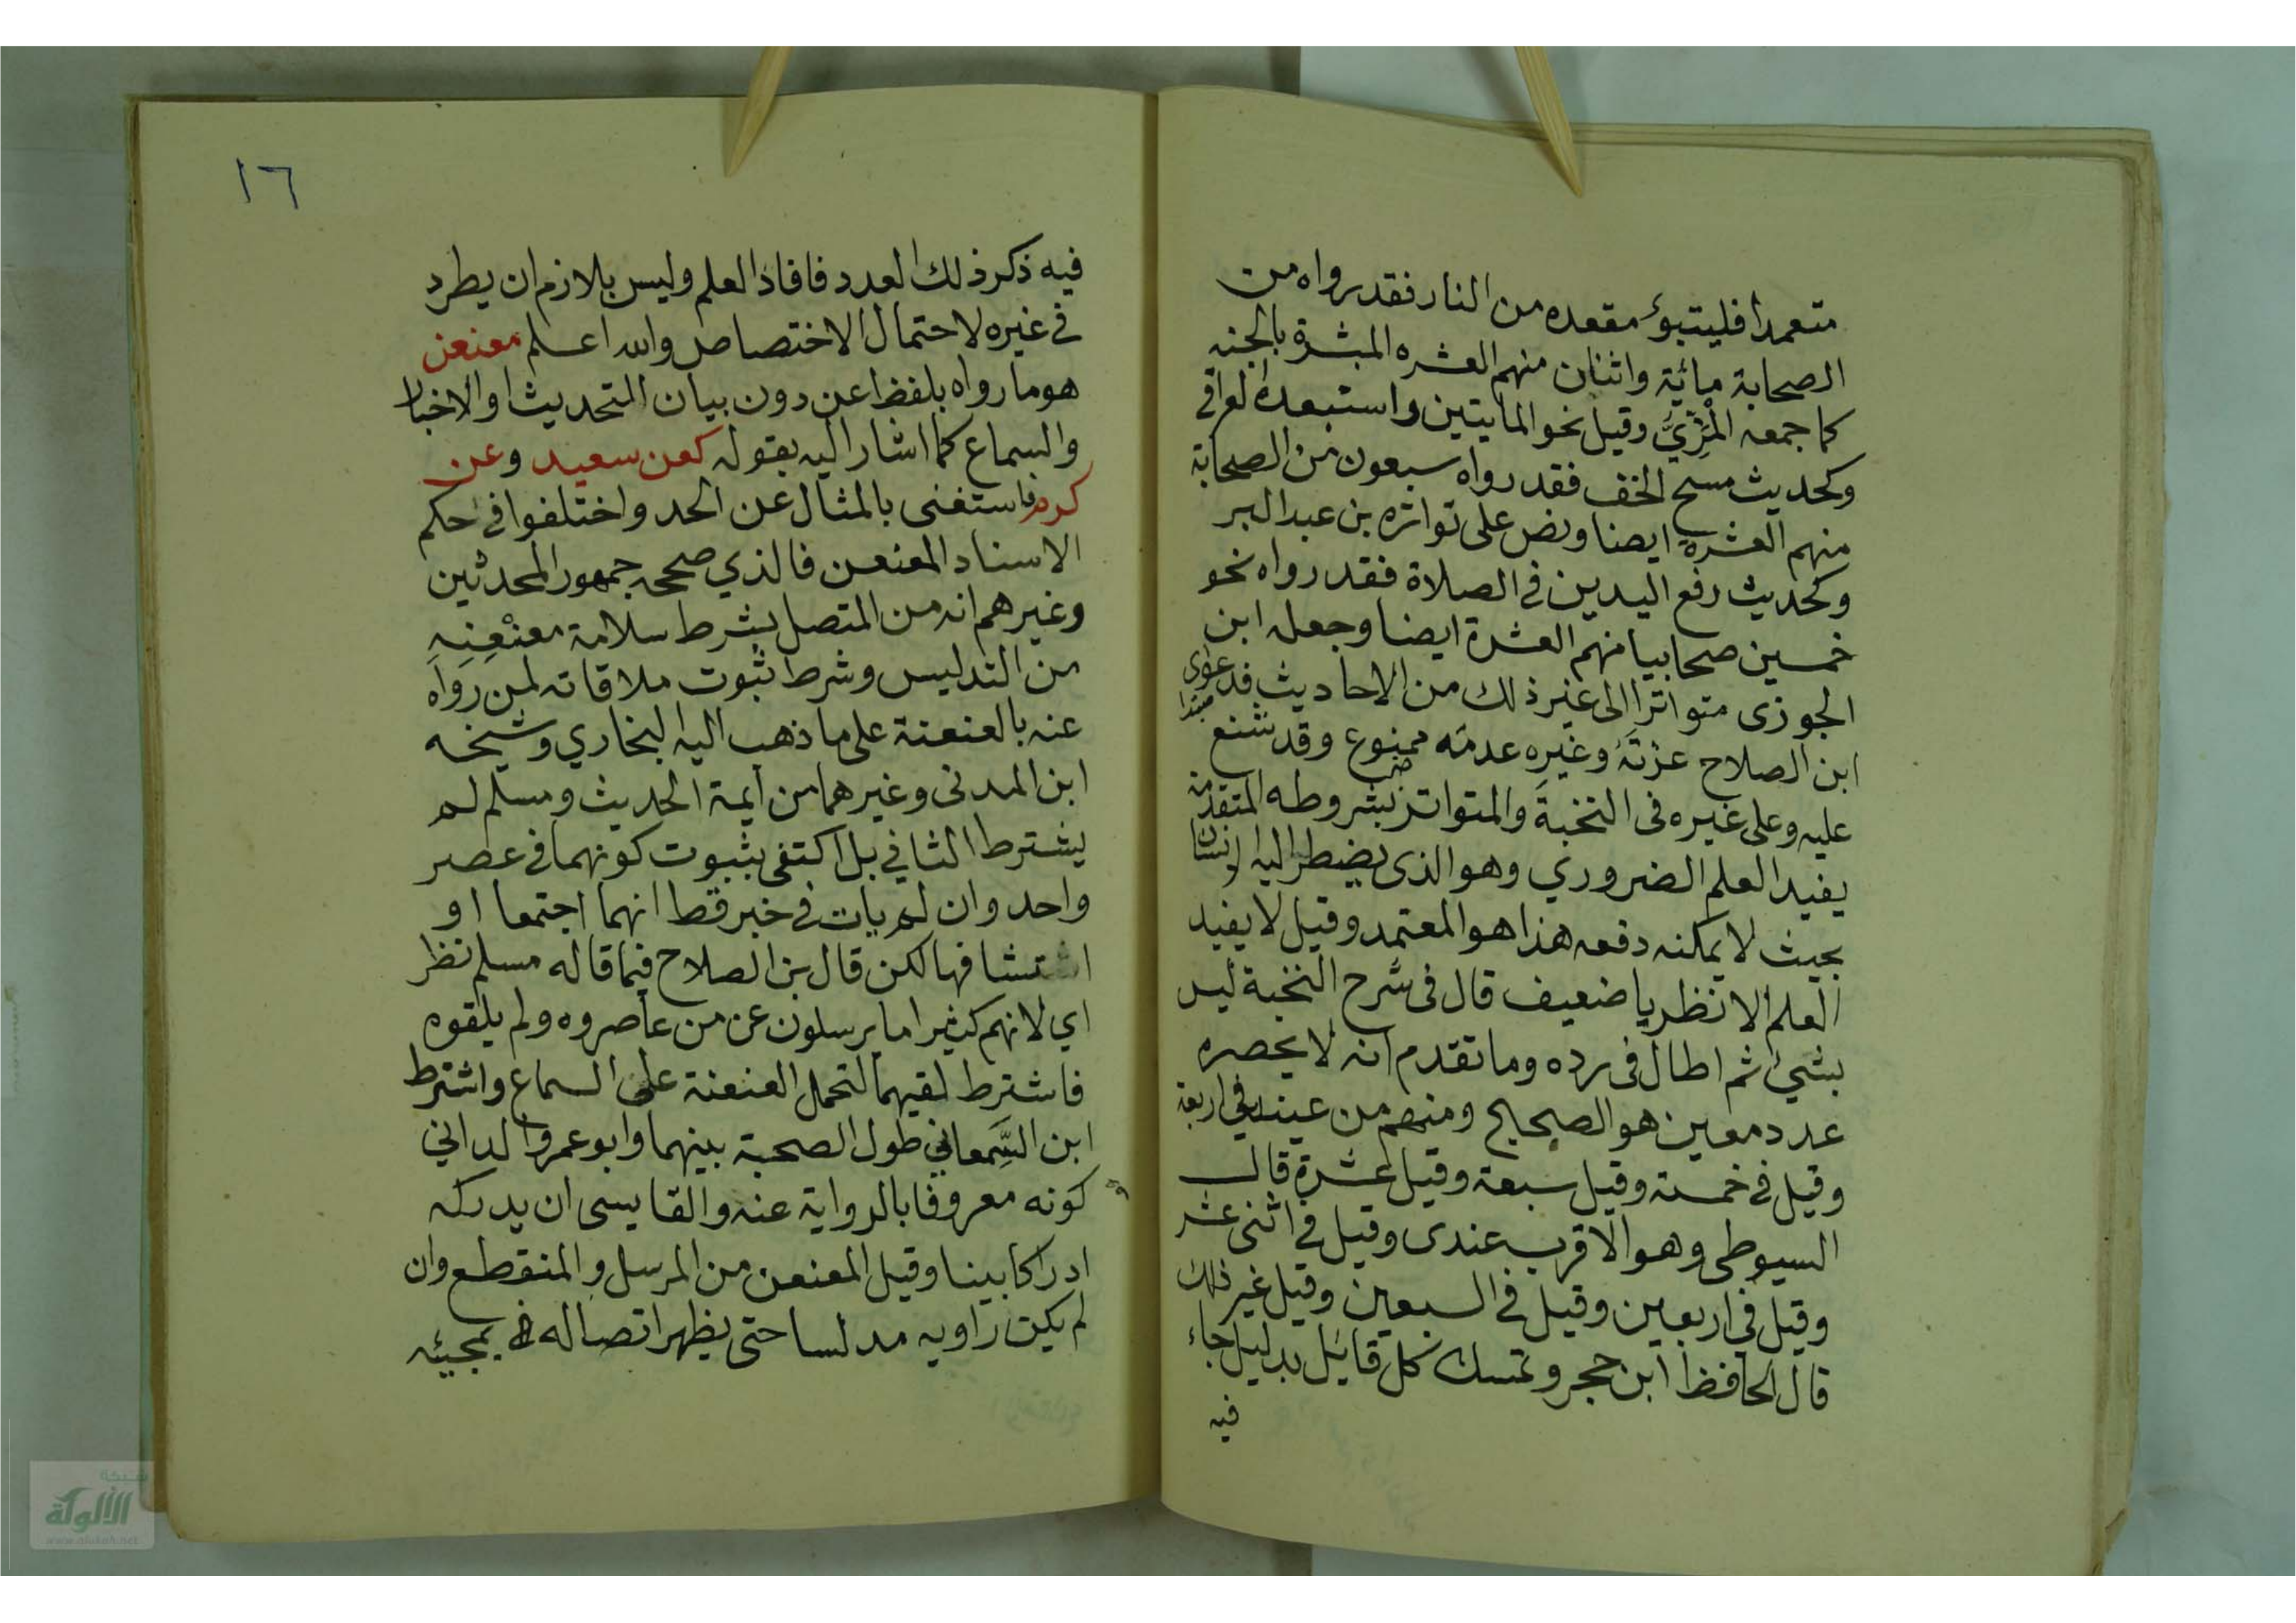 متعمدا فليتبوؤ مقعده من النار فقد رواه من
الصحابة مائية واثنان منهم العشره المبشرة بالجنه
كما جمعه المزيّ وقيل نحو المايتين واستبعده العراقي
وكحديث مسح الخف فقد رواه سبعون من الصحابة
منهم العشرة ايضا ونص على تواتره بن عبد البر
وكحديث رفع اليدين في الصلاة فقد رواه نحو
خمسين صحابيا منهم العشرة ايضا وجعله ابن
الجوزى متواترا الى غير ذلك من الاحاديث فدعوى
مبتدا
ابن الصلاح عزته وغيره عدمه ممنوع وقد شنع
عليه وعلى غيره فى النخبة والمتواتر بشروطه المتقدمة
يفيد العلم الضروري وهو الذى يضطر اليه الانسان
بحيث لا يمكنه دفعه هذا هو المعتمد وقيل لا يفيد
العلم الا نظريا ضعيف قال فى شرح النخبة ليس
بشيئ ثم اطال فى رده وما تقدم انه لا يحصره
عدد معين هو الصحيح ومنهم من عينه في اربعة
وقيل في خمسة وقيل سبعة وقيل عشرة قال
السيوطى وهو الاقرب عندى وقيل في اثنى عشر
وقيل في اربعين وقيل في السبعين وقيل غير ذلك
قال الحافظ ابن حجر وتمسك كل قايل بدليل جاء
فيه
١٦
فيه ذكر ذلك العدد فافاد العلم وليس بلازم ان يطرد
في غيره لاحتمال الاختصاص والله اعلم معنعن
هو ما رواه بلفظ عن دون بيان التحديث او الاخبار
والسماع كما اشار اليه بقوله كعن سعيد وعن
كرم فاستغنى بالمثال عن الحد واختلفوا في حكم
الاسناد المعنعن فالذي صححه جمهور المحدثين
وغيرهم انه من المتصل بشرط سلامة معنعِنِهِ
من التدليس وشرط ثبوت ملاقاته لمن رواه
عنه بالعنعنة على ما ذهب اليه البخاري وشيخه
ابن المدنى وغيرهما من ايمة الحديث ومسلم لم
يشترط الثاني بل اكتفى بثبوت كونهما في عصر
واحد وان لم يات في خبر قط انهما اجتمعا او
تشافها لكن قال بن الصلاح فيما قاله مسلم نظر
اي لانهم كثيرا ما يرسلون عن من عاصروه ولم يلقوه
فاشترط لقيهما لتحمل العنعنة على السماع واشترط
ابن السَّمعاني طول الصحبة بينهما وابو عمرو الداني
كونه معروفا بالرواية عنه والقابسى ان يدركه
ادراكا بينا وقيل المعنعن من المرسل والمنقطع وان
لم يكن راويه مدلسا حتى يظهر اتصاله بمجيئه
شبكة
الألوكة
www.alukah.net